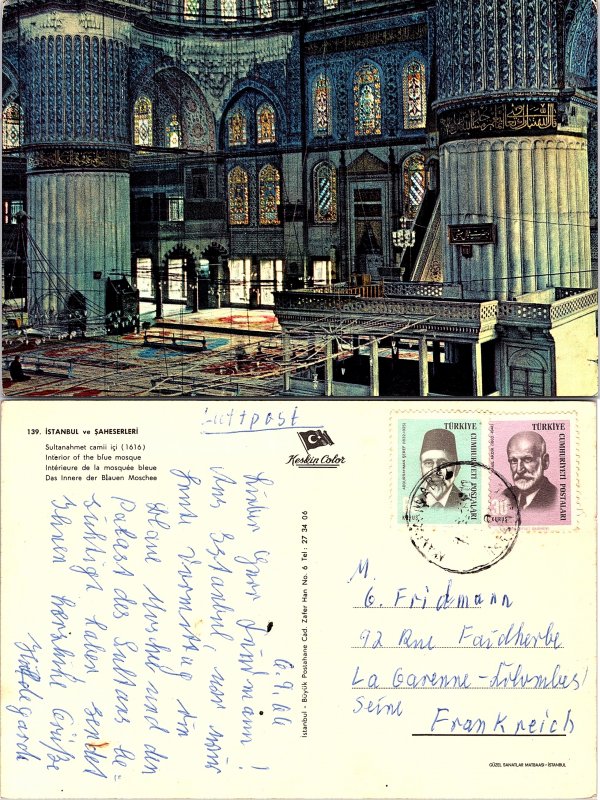 139. İSTANBUL ve ŞAHESERLERİ
Sultanahmet camii içi (1616)
Interior of the blue mosque
Intérieure de la mosquée bleue
Das Innere der Blauen Moschee
Luftpost
Keskin Color
TÜRKİYE
CUMHURİYETİ POSTALARI
ABDURRAHMAN ŞEREF (1853-1925)
KURUŞ
TÜRKİYE
CUMHURİYETİ POSTALARI
30
KURUŞ
İstanbul - Büyük Postahane Cad. Zafer Han No. 6 Tel : 27 34 06
6.9.66
Lieber Herr Fridmann!
Aus Istanbul, wo wir
heute Vormittag die
Blaue Moschee und den
Palast des Sultans be=
sichtigt haben sendet
Ihnen herzliche Grüße
Hildegarde
M.
G. Fridmann
92 Rue Faidherbe
La Garenne-Colombes/
Seine
Frankreich
GÜZEL SANATLAR MATBAASI-İSTANBUL